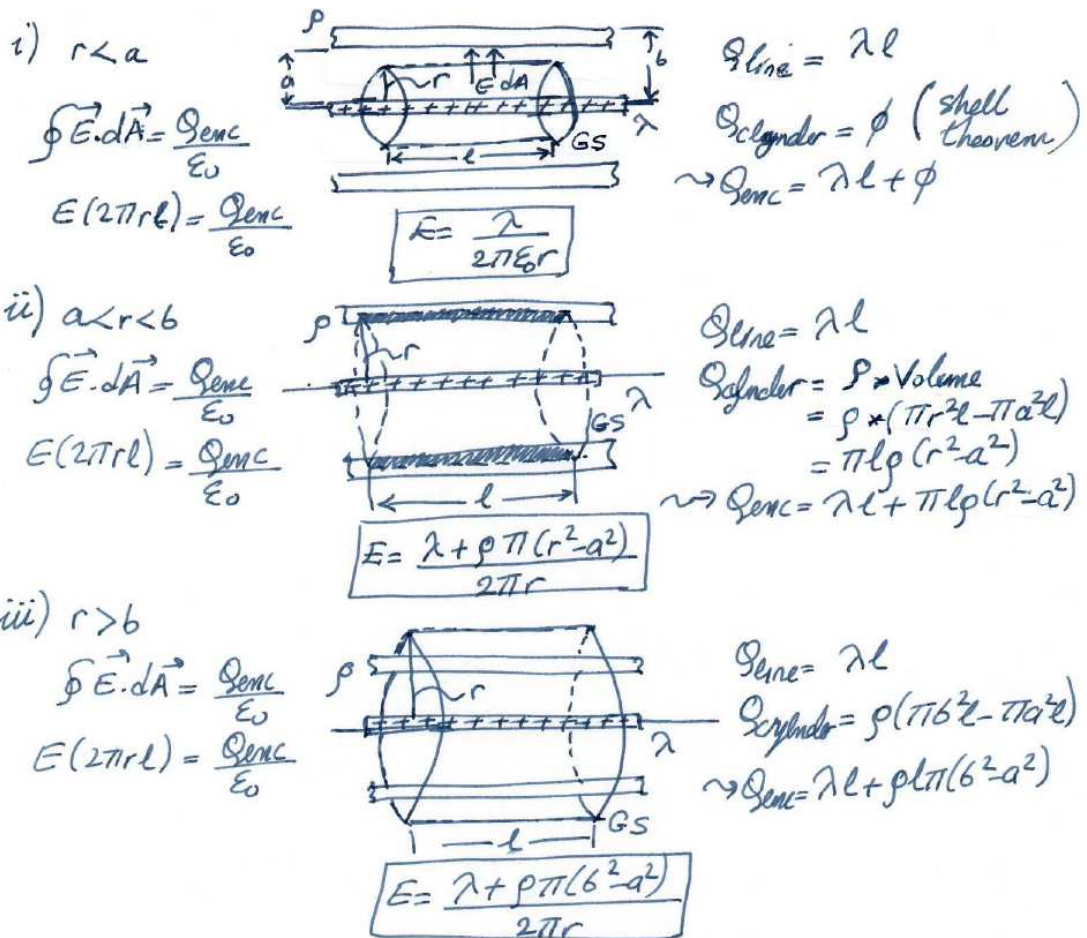 i) r<a
∮E⃗·dA⃗ = Qenc/ε₀
E(2πrl) = Qenc/ε₀
ρ
a
r
E dA
b
+ + + + + + + + + + +
λ
GS
l
E = λ/2πε₀r
Qline = λl
Qclynder = ϕ (shell theorem)
⇝ Qenc = λl + ϕ
ii) a<r<b
∮E⃗·dA⃗ = Qenc/ε₀
E(2πrl) = Qenc/ε₀
ρ
r
+ + + + + + + + + +
λ
GS
l
E = λ + ρπ(r²-a²)/2πr
Qline = λl
Qcylnder = ρ * Volume
= ρ * (πr²l - πa²l)
= πlρ(r²-a²)
⇝ Qenc = λl + πlρ(r²-a²)
iii) r>b
∮E⃗·dA⃗ = Qenc/ε₀
E(2πrl) = Qenc/ε₀
ρ
r
+ + + + + + + + + +
λ
GS
l
E = λ + ρπ(b²-a²)/2πr
Qline = λl
Qcylnder = ρ(πb²l - πa²l)
⇝ Qenc = λl + ρlπ(b²-a²)